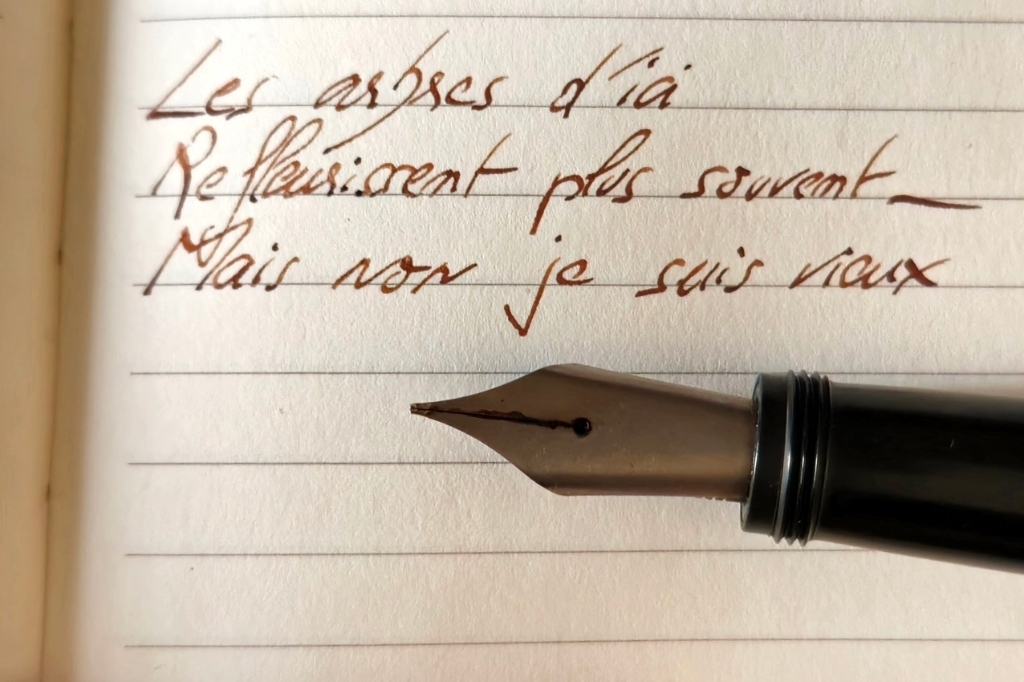 Les arbres d'ici
Refleurissent plus souvent_
Mais non je suis vieux